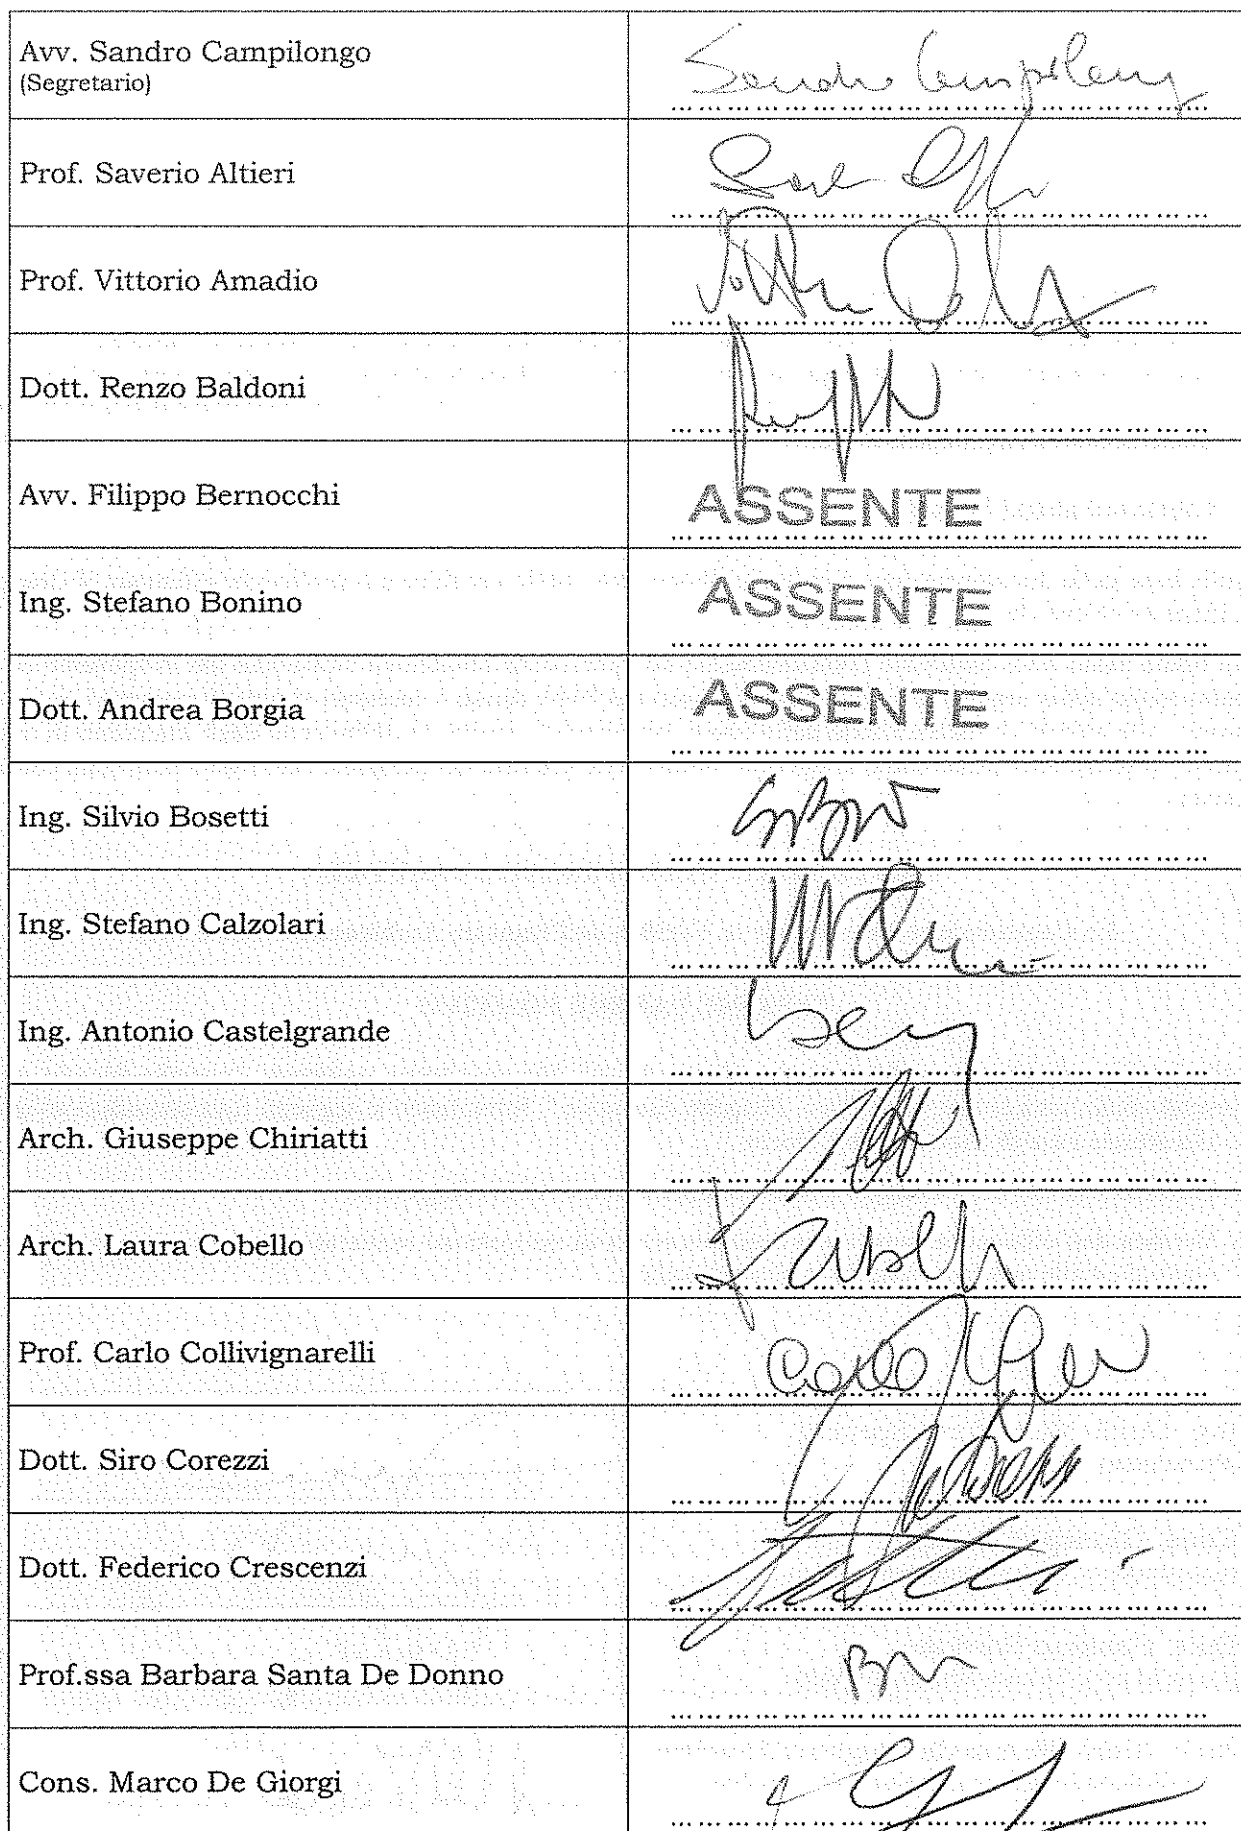 Avv. Sandro Campilongo
(Segretario)
Sandro Campilong
Prof. Saverio Altieri
Prof. Vittorio Amadio
Dott. Renzo Baldoni
Avv. Filippo Bernocchi
ASSENTE
Ing. Stefano Bonino
ASSENTE
Dott. Andrea Borgia
ASSENTE
Ing. Silvio Bosetti
Ing. Stefano Calzolari
Ing. Antonio Castelgrande
Arch. Giuseppe Chiriatti
Arch. Laura Cobello
Prof. Carlo Collivignarelli
Carlo
Dott. Siro Corezzi
Dott. Federico Crescenzi
Prof.ssa Barbara Santa De Donno
Cons. Marco De Giorgi